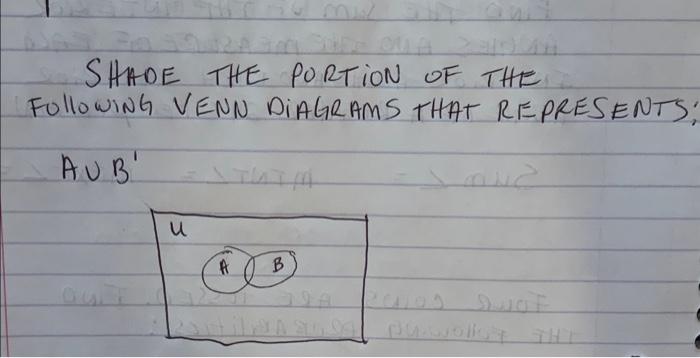 SHADE THE PORTION OF THE
FOLLOWING VENN DIAGRAMS THAT REPRESENTS;
A ∪ B'
U
A B